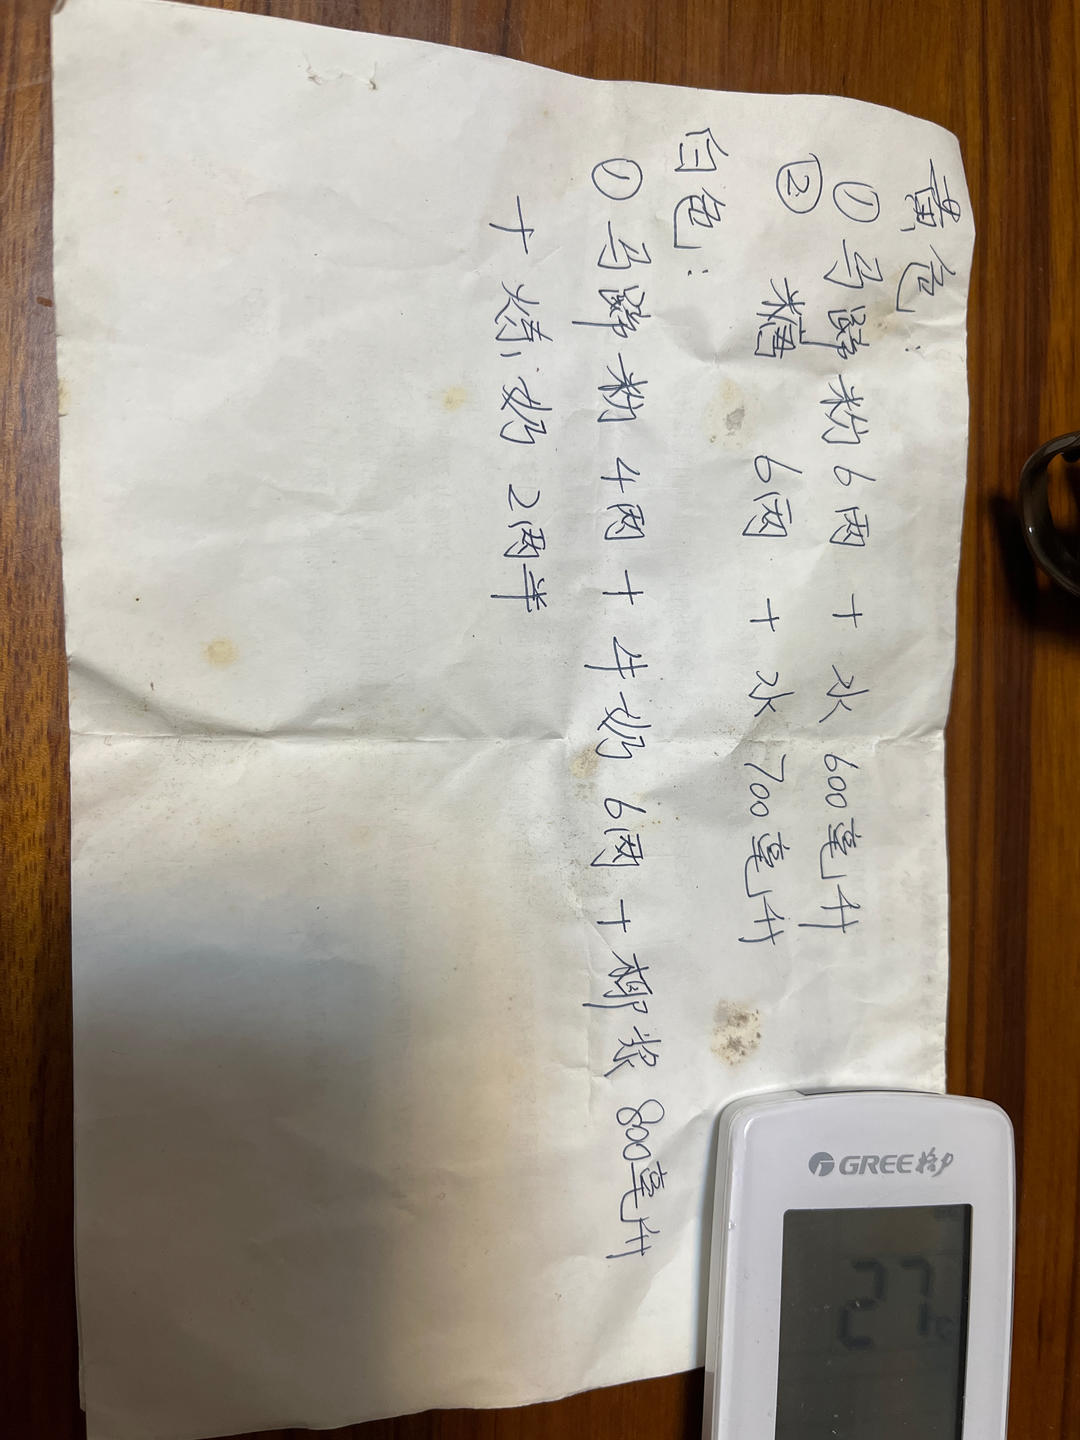 黄色:
① 马蹄粉6两 + 水600毫升
② 糖 6两 + 水700毫升
白色:
① 马蹄粉4两 + 牛奶6两 + 椰浆800毫升
+ 炼奶2两半
GREE格力
27℃